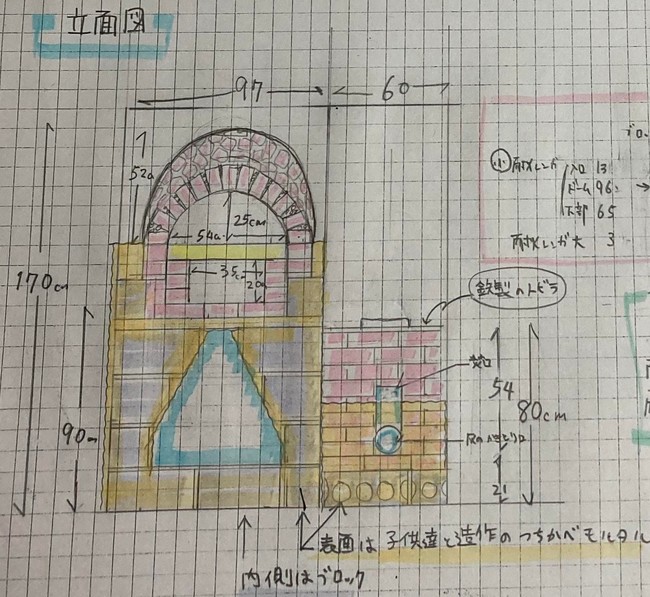 立面図
97
60
52cm
25cm
54cm
35cm
20
170cm
90cm
ブロ
小 耐火レンガ 入口 13
ドーム 96
下部 65
耐火レンガ大 3
鉄製のトビラ
焚口
54
80cm
21
表面は子供達と造作のつちかべモルタル
内側はブロック